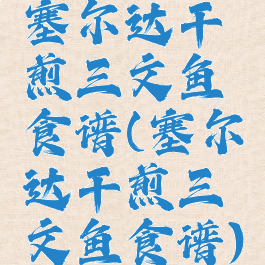 塞尔达干
煎三文鱼
食谱(塞尔
达干煎三
文鱼食谱)